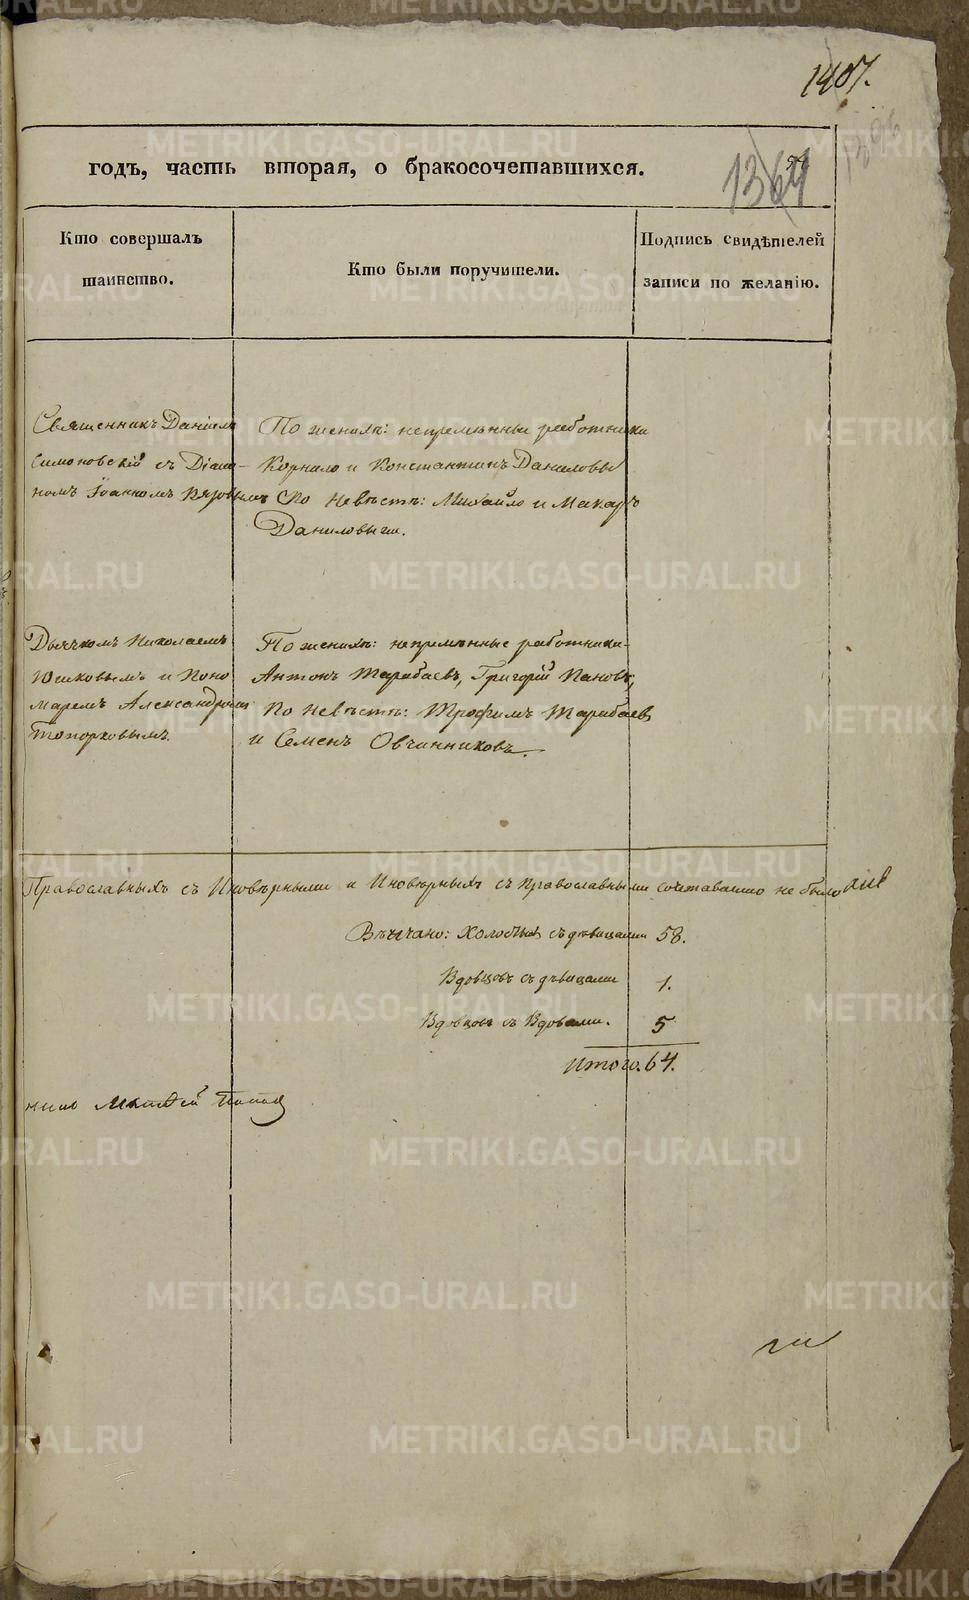 1407.
годъ, часть вторая, о бракосочетавшихся.
1364
Кто совершалъ
таинство.
Кто были поручители.
Подпись свидѣтелей
записи по желанію.
Священникъ Даніилъ
Симоновскій съ Діако-
номъ Іоанномъ
По женихѣ: непремѣнные работники
Корнило и Константинъ Даниловы
По невѣстѣ: Михайло и Макаръ
Даниловы же.
Дьячкомъ Николаемъ
и Поно
маремъ Александромъ
Топорковымъ.
По женихѣ: непремѣнные работники
Антонъ Тарабаевъ, Григорій Пановъ,
По невѣстѣ: Трофимъ Тарабаевъ
и Семенъ Овчинниковъ.
Православныхъ съ Иновѣрными и Иновѣрныхъ съ православными не было
Вѣнчано: Холостыхъ съ дѣвицами 58.
Вдовцовъ съ дѣвицами 1.
Вдовцовъ съ Вдовами. 5
Итого. 64.
METRIKI.GASO-URAL.RU